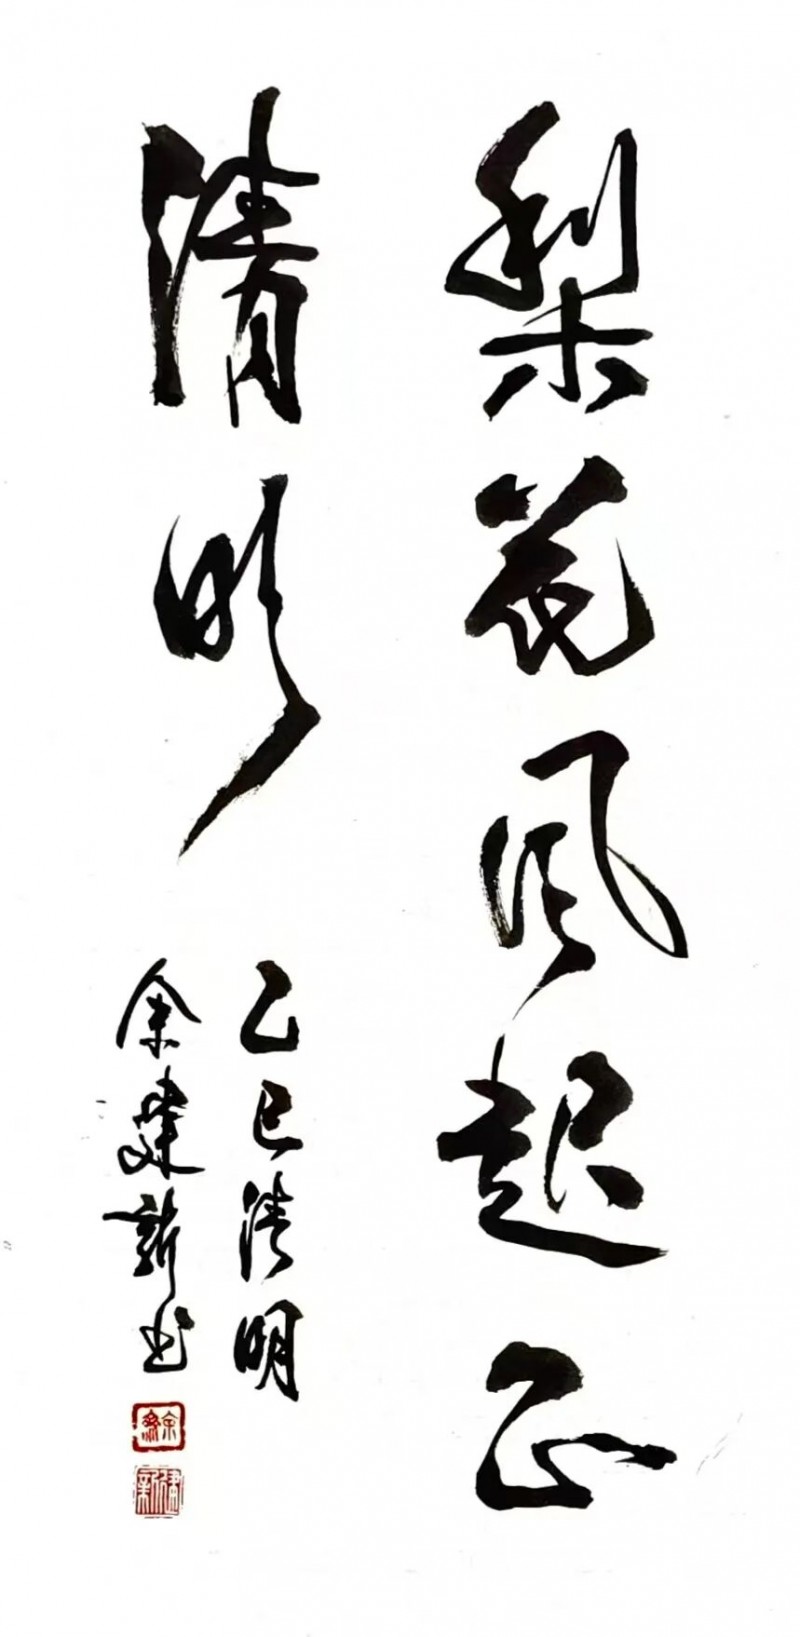 梨花风起正
清明
乙巳清明
余建新书
余
建新